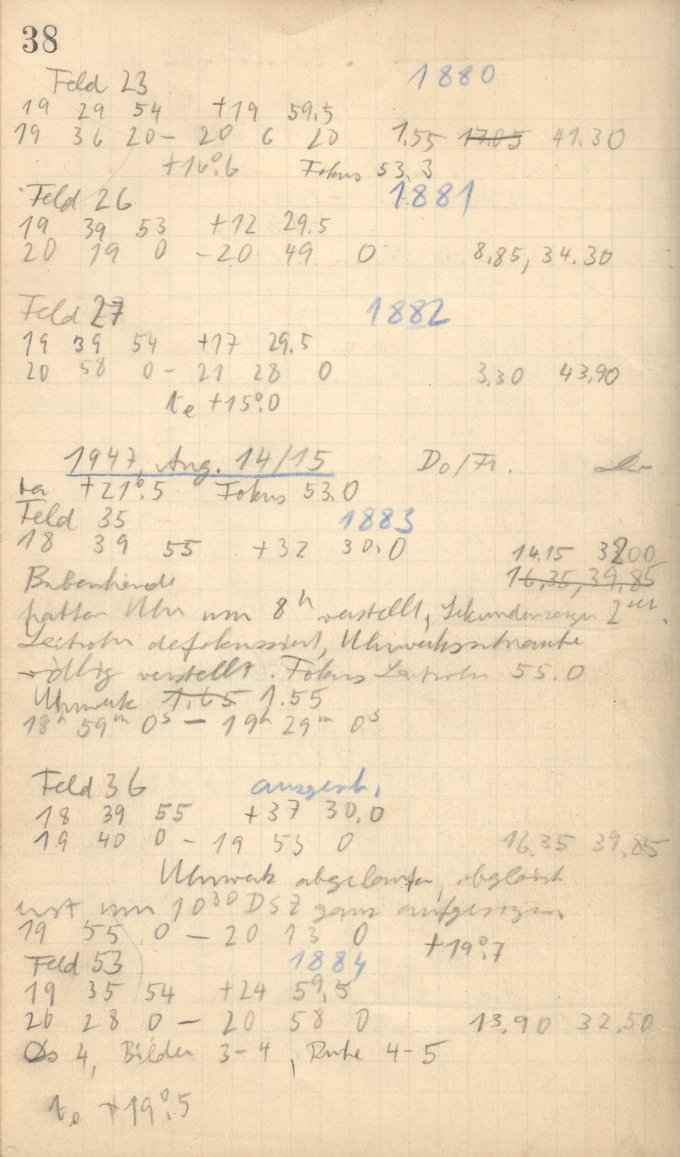 38
Feld 23 1880
19 29 54 +19 59.5
19 36 20 – 20 6 20 1.55 17.05 41.30
+16°.6 Fokus 53.3
Feld 26 1881
19 39 53 +12 29.5
20 19 0 – 20 49 0 8.85, 34.30
Feld 27 1882
19 39 54 +17 29.5
20 58 0 – 21 28 0 3.30 43.90
te +15°.0
1947, Aug. 14/15 Do/Fr.
ta +21°.5 Fokus 53.0
Feld 35 1883
18 39 55 +32 30.0 14.15 32.00
Bubenhände 16,35, 39,85
hatten Uhr um 8h verstellt, Sekundenzeiger
Leitrohr defokussiert, Uhrwerksschraube
völlig verstellt. Fokus Leitrohr 55.0
Uhrwerk 1.65 1.55
18h 59m 0s – 19h 29m 0s
Feld 36
18 39 55 +37 30.0
19 40 0 – 19 53 0 16.35 39.85
Uhrwerk abgelaufen, obgleich
erst um 10 30 DSZ ganz aufgezogen
19 55 0 – 20 13 0 +19°.7
Feld 53 1884
19 35 54 +24 59.5
20 28 0 – 20 58 0 13.90 32.50
4, Bilder 3–4, Ruhe 4–5
te +19°.5